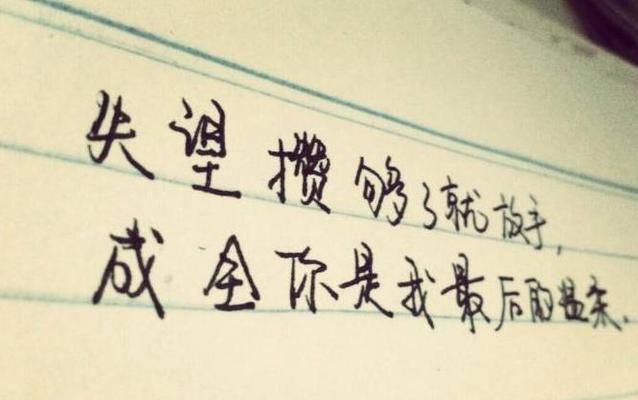 失望攒够了就放手，
成全你是我最后的温柔.